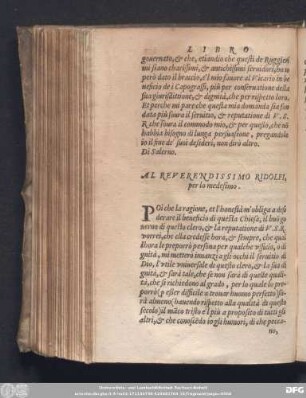 LIBRO
gouernato, & che, etiandio che questi de Ruggieri
mi siano charissimi, & antichissimi seruidori, ho
però dato il braccio, e'l mio fauore al Vicario in be
neficio de i Capograssi, più per conseruatione della
sua giurisditione, & dignità, che per rispetto loro.
Et perche mi pare che questa mia domanda sia fon
data più soura il seruitio, & reputatione di V. S.
R. che soura il commodo mio, & per questo, che nō
habbia bisogno di lunga persuasione, pregandola
io il fine de' suoi desideri, non dirò altro.
Di Salerno.
AL REVERENDISSIMO RIDOLFI,
per lo medesimo.
POi che la ragione, et l'honestà m'obliga a desi
derare il beneficio di questa Chiesa, il buō go
uerno di questo clero, & la reputatione di V.S.R.
vorrei, che ella credesse hora, & sempre, che qual
hora le preporrò persona per qualche vficio, o di
gnità, mi metterò innanzi a gli occhi il seruitio di
Dio, l'vtile vniuersale di questo clero, & la sua di
gnità, & sarà tale, che se non sarà di quelle qualità,
che si richiedono al grado, per lo quale lo pre
porrò (p esser difficile a trouar huomo perfetto) sa
rà almeno (hauendo rispetto alla qualità di questo
secolo) il māco tristo e'l più a proposito di tutti gli
altri, & che conoscēdo io gli humori, di che pecca-
no,